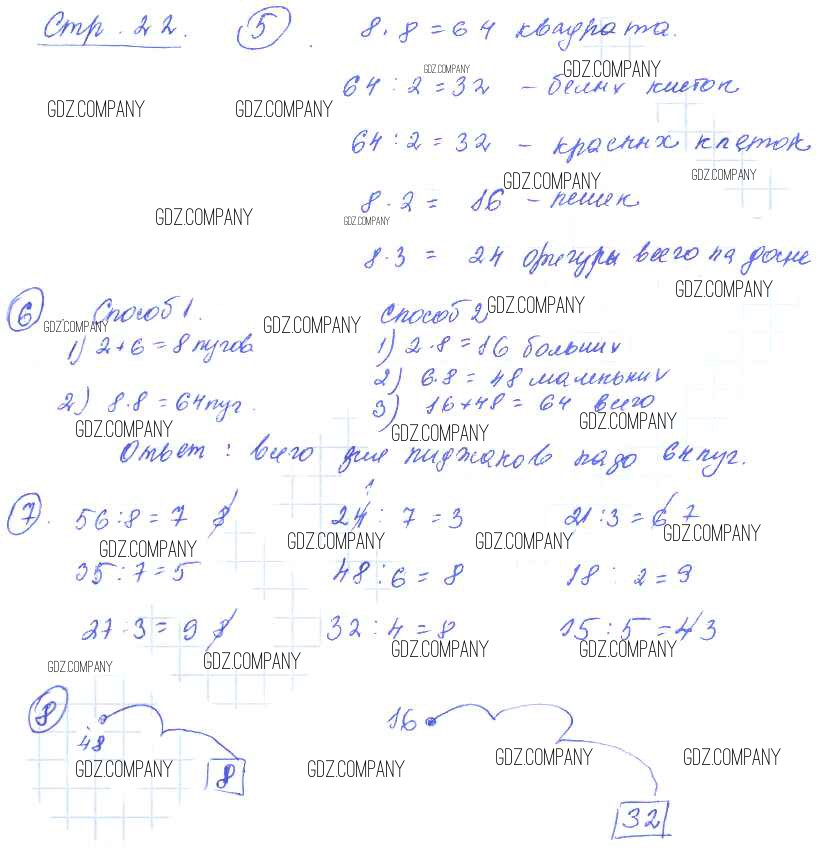 Стр. 22. 5. 8 · 8 = 64 квадрата.
GDZ.COMPANY GDZ.COMPANY
64 : 2 = 32 – белых клеток
GDZ.COMPANY GDZ.COMPANY
64 : 2 = 32 – красных клеток
GDZ.COMPANY GDZ.COMPANY
8 · 2 = 16 – пешек
GDZ.COMPANY GDZ.COMPANY
8 · 3 = 24 фигуры всего на доске
GDZ.COMPANY
6 Способ 1. Способ 2 GDZ.COMPANY
GDZ.COMPANY GDZ.COMPANY
1) 2+6 = 8 пугов 1) 2 · 8 = 16 больших
2) 6 · 8 = 48 маленьких
2) 8 · 8 = 64 пуг. 3) 16+48 = 64 всего
GDZ.COMPANY GDZ.COMPANY GDZ.COMPANY
Ответ : всего для пиджаков надо 64 пуг.
7. 56 : 8 = 7 8 24 1 : 7 = 3 21 : 3 = 6 7
GDZ.COMPANY GDZ.COMPANY GDZ.COMPANY GDZ.COMPANY
35 : 7 = 5 48 : 6 = 8 18 : 2 = 9
27 : 3 = 9 8 32 : 4 = 8 15 : 5 = 4 3
GDZ.COMPANY GDZ.COMPANY GDZ.COMPANY GDZ.COMPANY
8 48 16
GDZ.COMPANY 8 GDZ.COMPANY GDZ.COMPANY GDZ.COMPANY
32